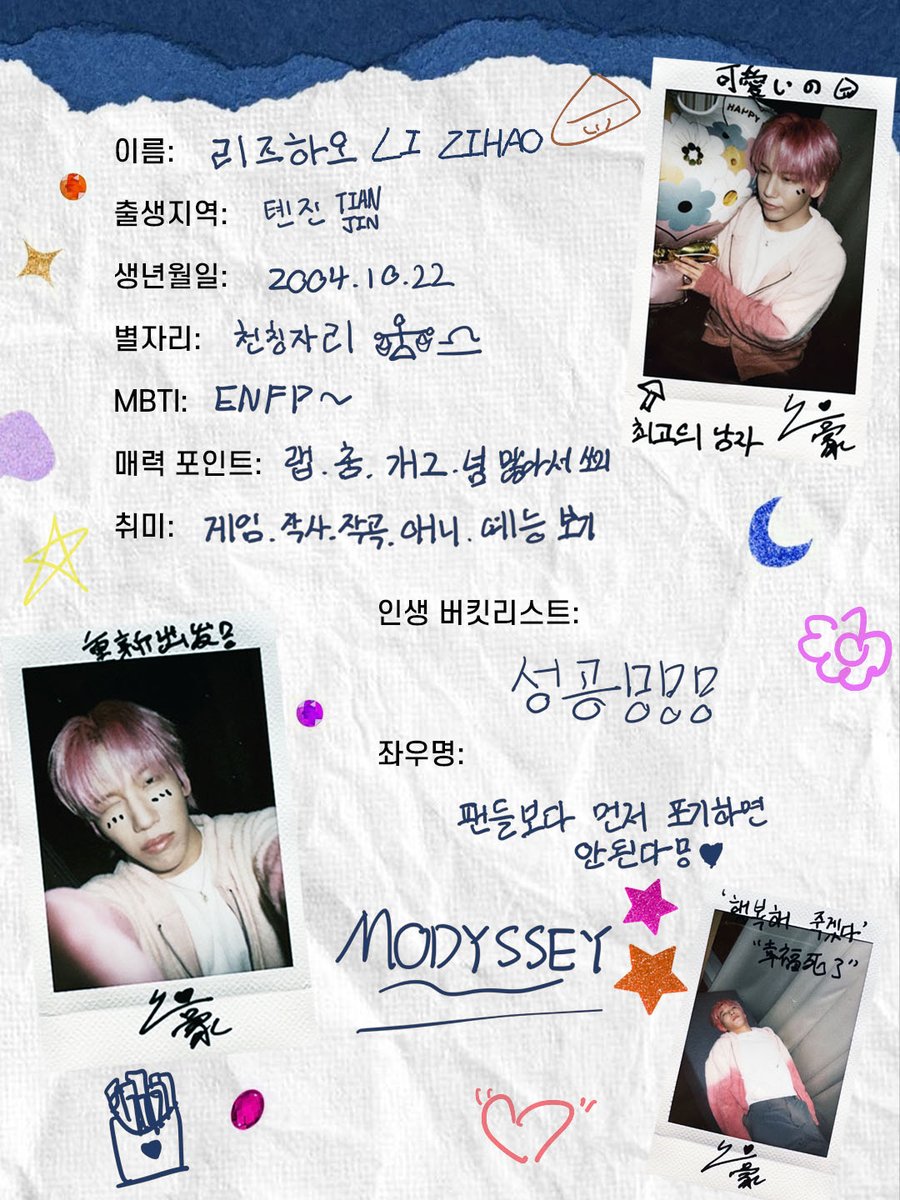 이름: 리즈하오 LI ZIHAO
출생지역: 텐진 TIAN JIN
생년월일: 2004.10.22
별자리: 천칭자리
MBTI: ENFP~
매력 포인트: 랩. 춤. 개그. 넘 많아서 쏘리
취미: 게임. 작사. 작곡. 애니. 예능 보기
可愛いの
HAPPY
최고의 남자
인생 버킷리스트:
성공밍밍밍
좌우명:
팬들보다 먼저 포기하면
안된다밍
重新出发
MODYSSEY
'행복해 죽겠다'
"幸福死了"